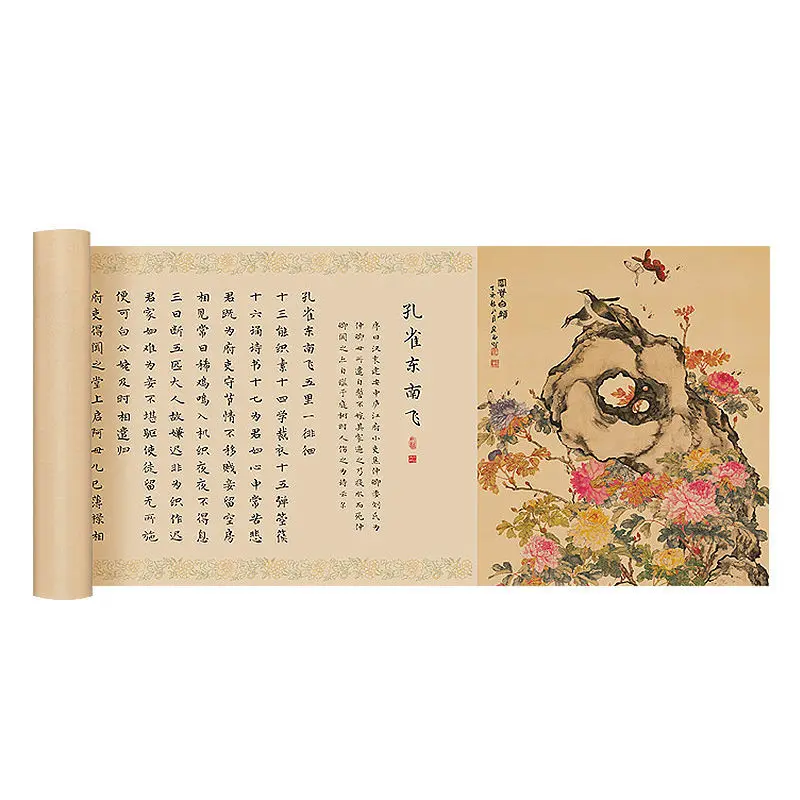 富貴白頭
孔雀东南飞
序曰汉末建安中庐江府小吏焦仲卿妻刘氏为
仲卿母所遣自誓不嫁其家逼之乃投水而死仲
卿闻之亦自缢于庭树时人伤之为诗云尔
孔雀东南飞五里一徘徊
十三能织素十四学裁衣十五弹箜篌
十六诵诗书十七为君妇心中常苦悲
君既为府吏守节情不移贱妾留空房
相见常日稀鸡鸣入机织夜夜不得息
三日断五匹大人故嫌迟非为织作迟
君家妇难为妾不堪驱使徒留无所施
便可白公姥及时相遣归
府吏得闻之堂上启阿母儿已薄禄相